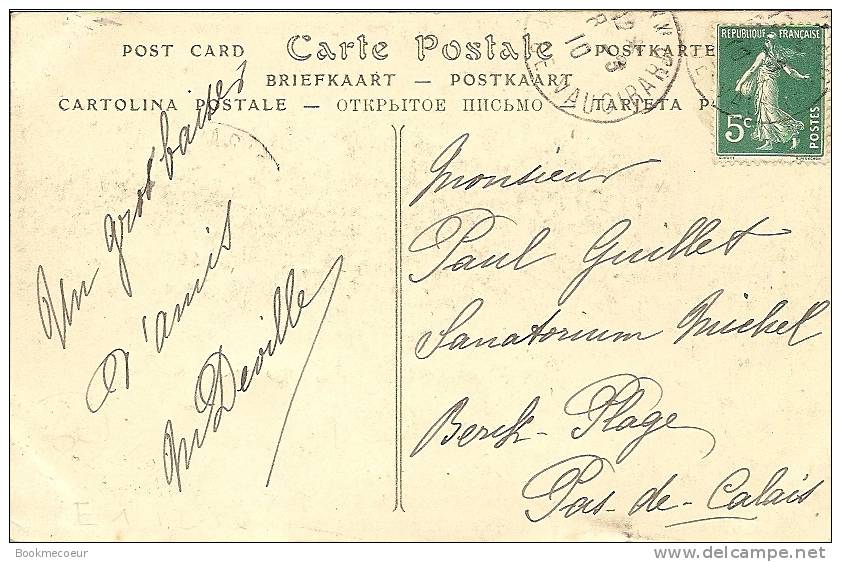 POST CARD Carte Postale POSTKARTE
BRIEFKAART — POSTKAART
CARTOLINA POSTALE — ОТКРЫТОЕ ПИСЬМО — TARJETA P
RÉPUBLIQUE FRANÇAISE
5c
POSTES
VAUGIRARD
10
Un gros baiser
d'amis
M Deville
Monsieur
Paul Guillet
Sanatorium Michel
Berck-Plage
Pas-de-Calais
E1
Bookmecoeur
www.delcampe.net